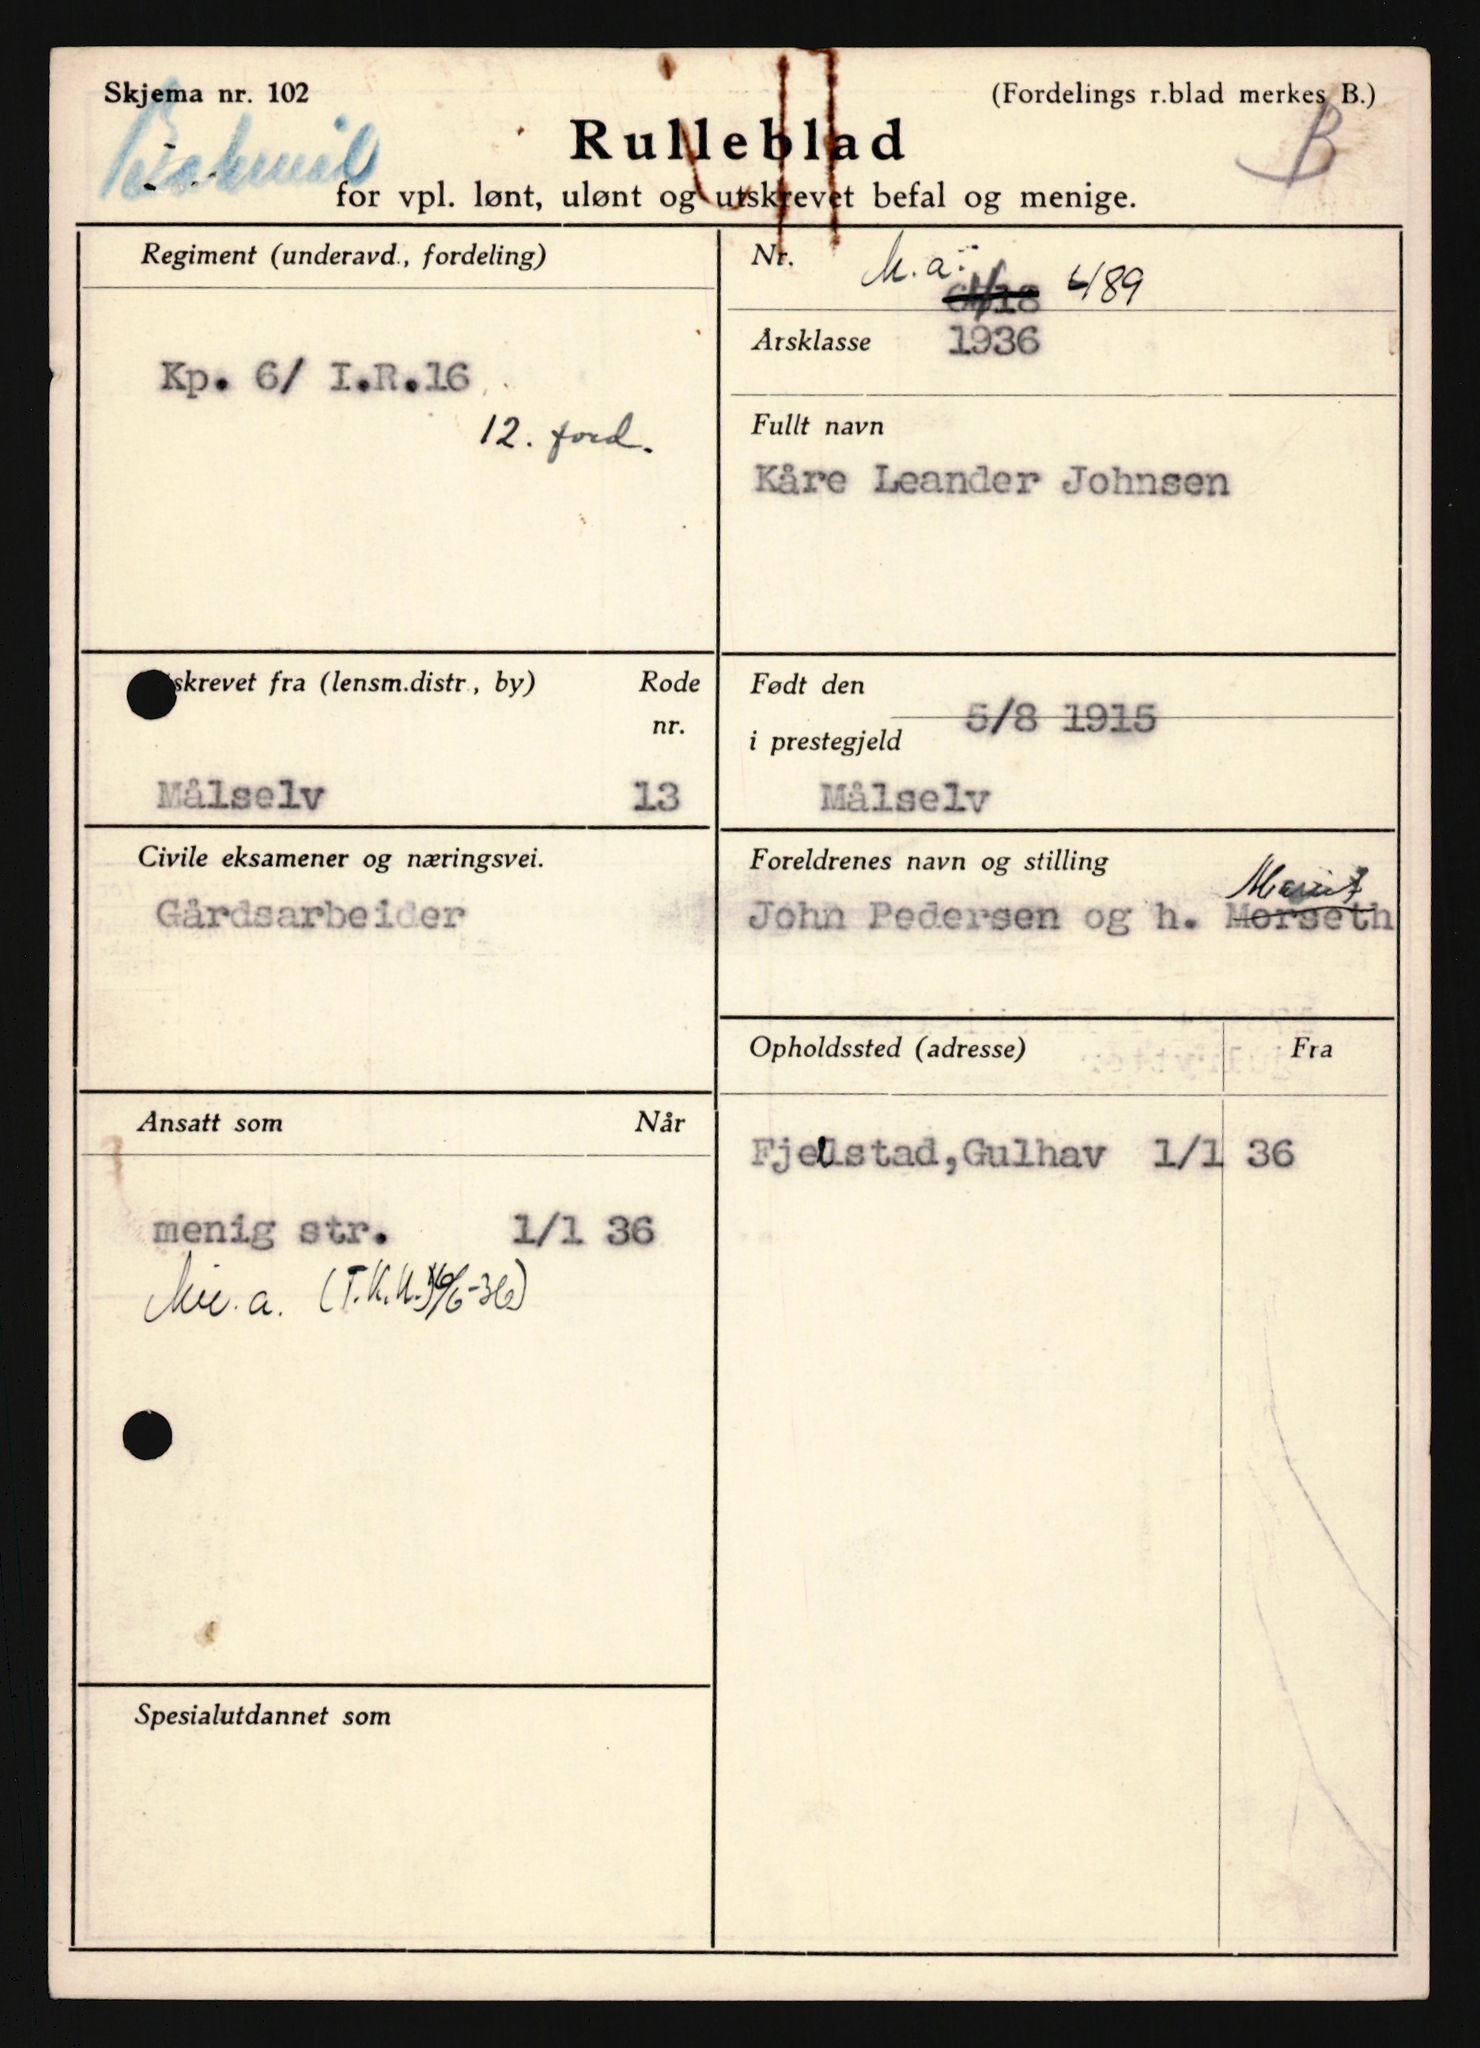 Skjema nr. 102
(Fordelings r.blad merkes B.)
B
Rulleblad
for vpl. lønt, ulønt og utskrevet befal og menige.
Regiment (underavd., fordeling)
Kp. 6/ I.R.16
12. ford.
Nr.
M.a.
489
Årsklasse 1936
Fullt navn
Kåre Leander Johnsen
skrevet fra (lensm.distr., by)
Rode
nr.
Målselv 13
Født den
5/8 1915
i prestegjeld
Målselv
Civile eksamener og næringsvei.
Gårdsarbeider
Foreldrenes navn og stilling
Marit
John Pedersen og h. Morseth
Opholdssted (adresse) Fra
Fjellstad,Gulhav 1/1 36
Ansatt som Når
menig str. 1/1 36
a. (T.K.N. 16/6-36)
Spesialutdannet som